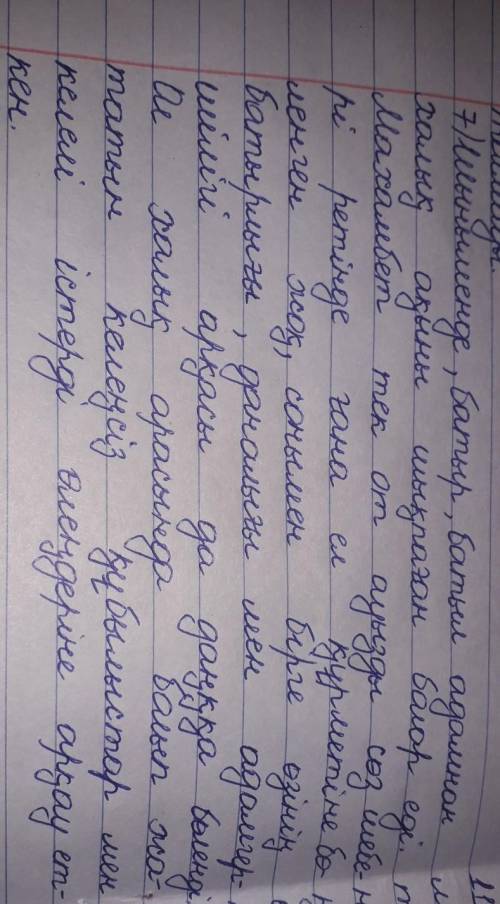 7) Шынымменде, батыр, батыл адамнан
халық ақыны шыққаған болар еді.
Махамбет тек от ауызды сөз шебе-
рі ретінде ғана ел құрметіне бө-
ленген жоқ, сонымен бірге өзінің
батырлығы, даналығы мен адамгер-
шілігі арқасы да даңққа бөленді.
Ол халық арасында болып жа-
татын келеңсіз құбылыстар мен
келелі істерді өлеңдеріне арқау ет-
кен.
11